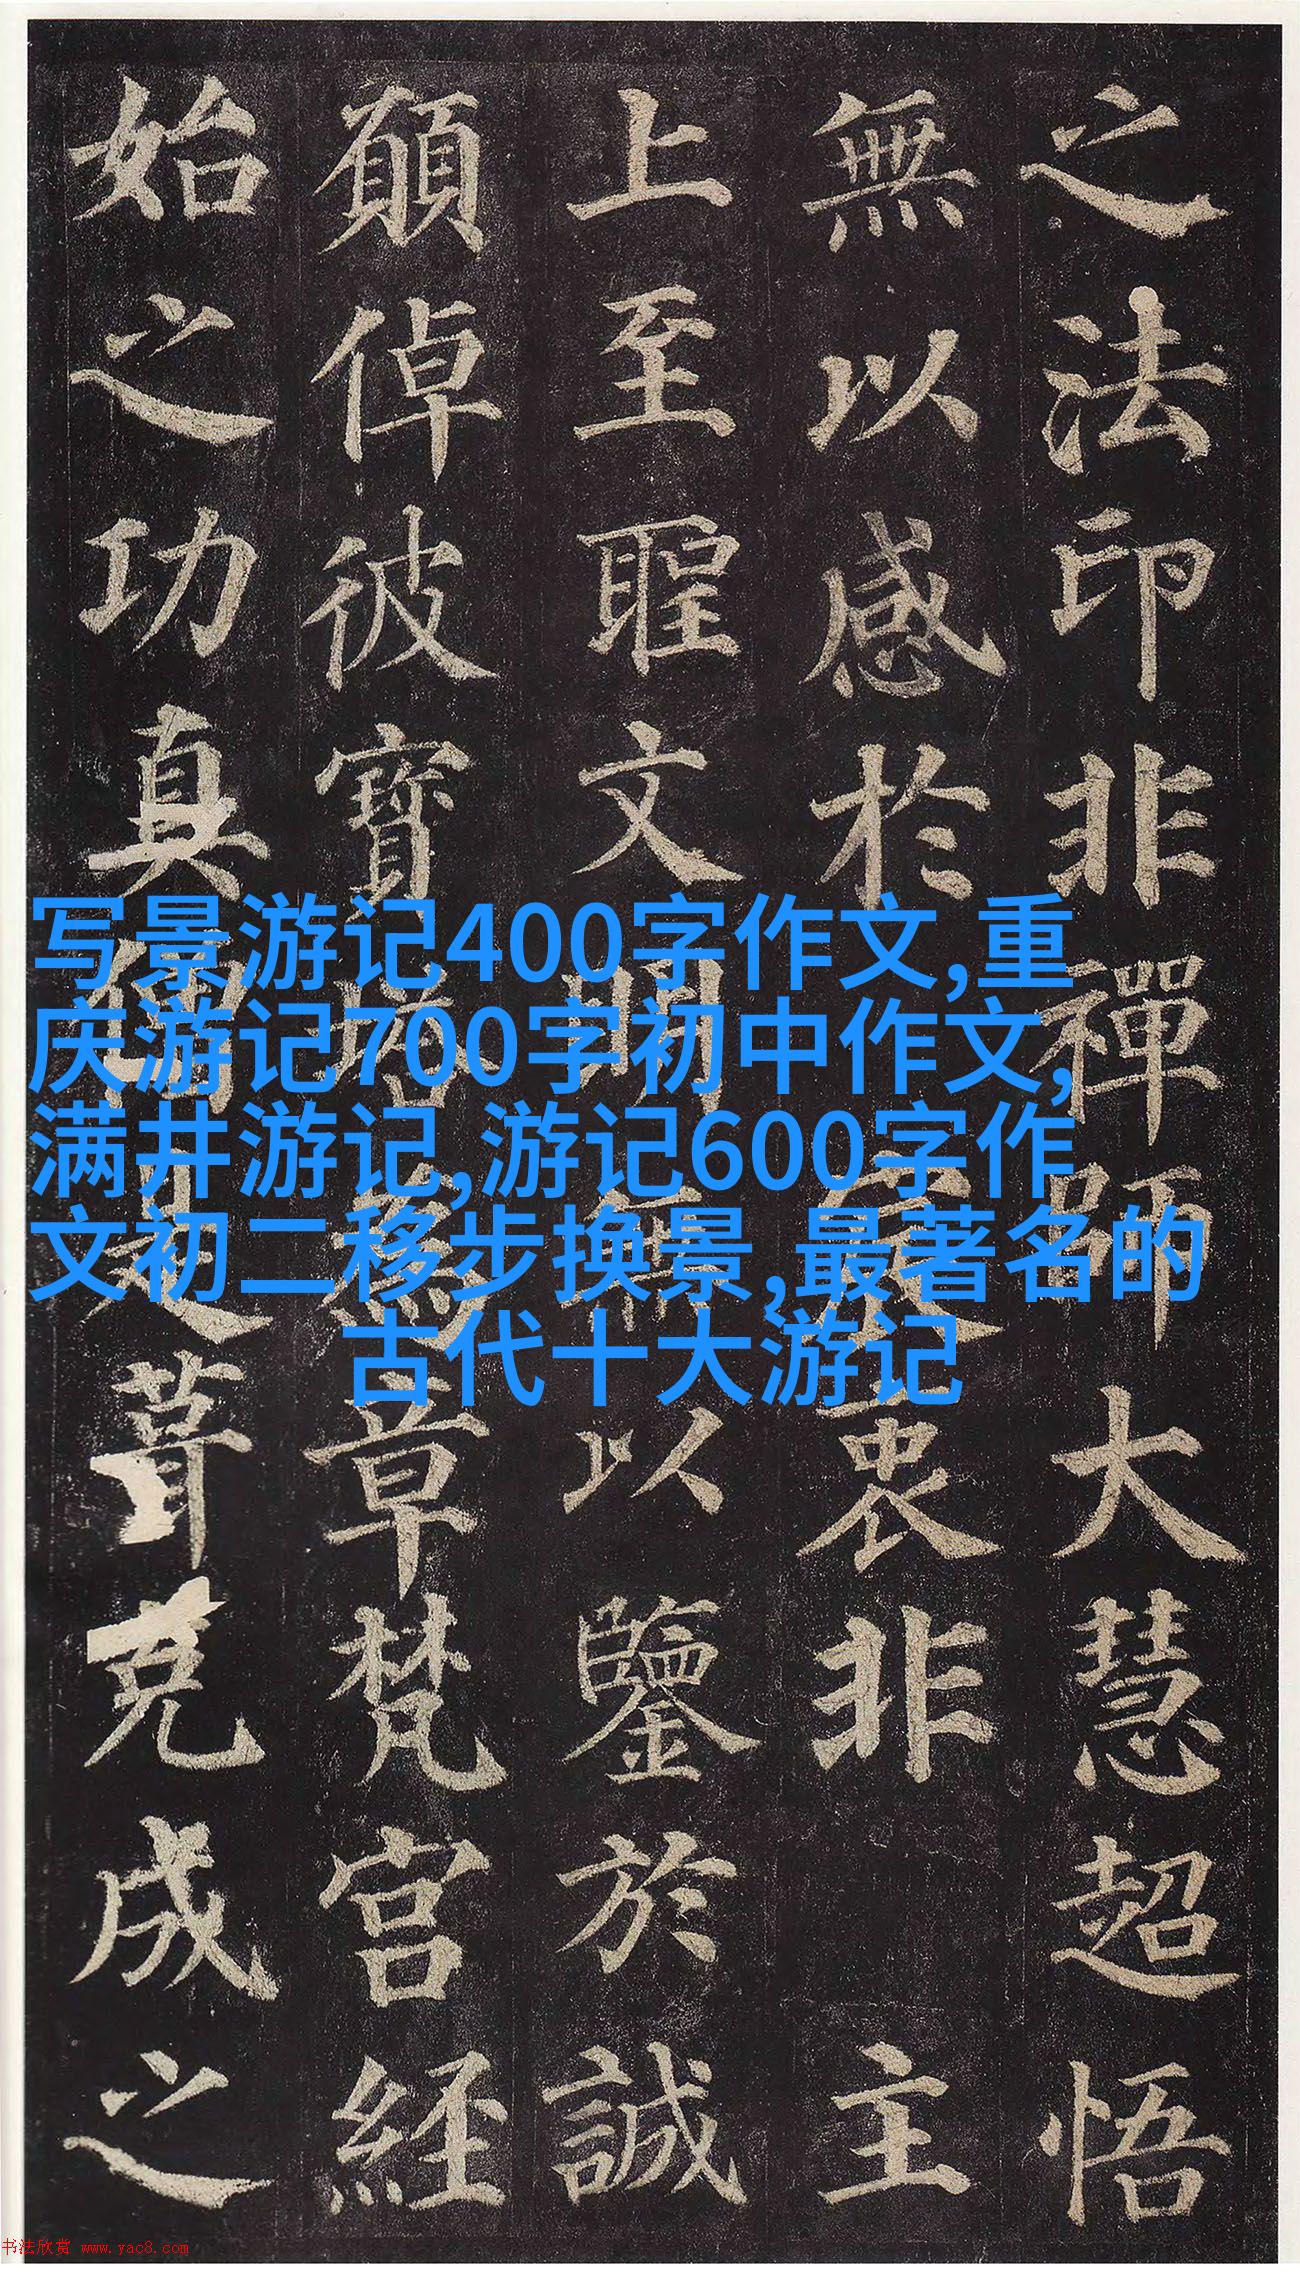 之法印非禪師大慧超悟
無以感於衷非主
上至聖文明以鑒於誠
顧倬彼寶塔為章梵宮經
始之功真僧是葺克成之
写景游记400字作文,重
庆游记700字初中作文,
满井游记,游记600字作
文初二移步换景,最著名的
古代十大游记
书法欣赏 www.yac8.com